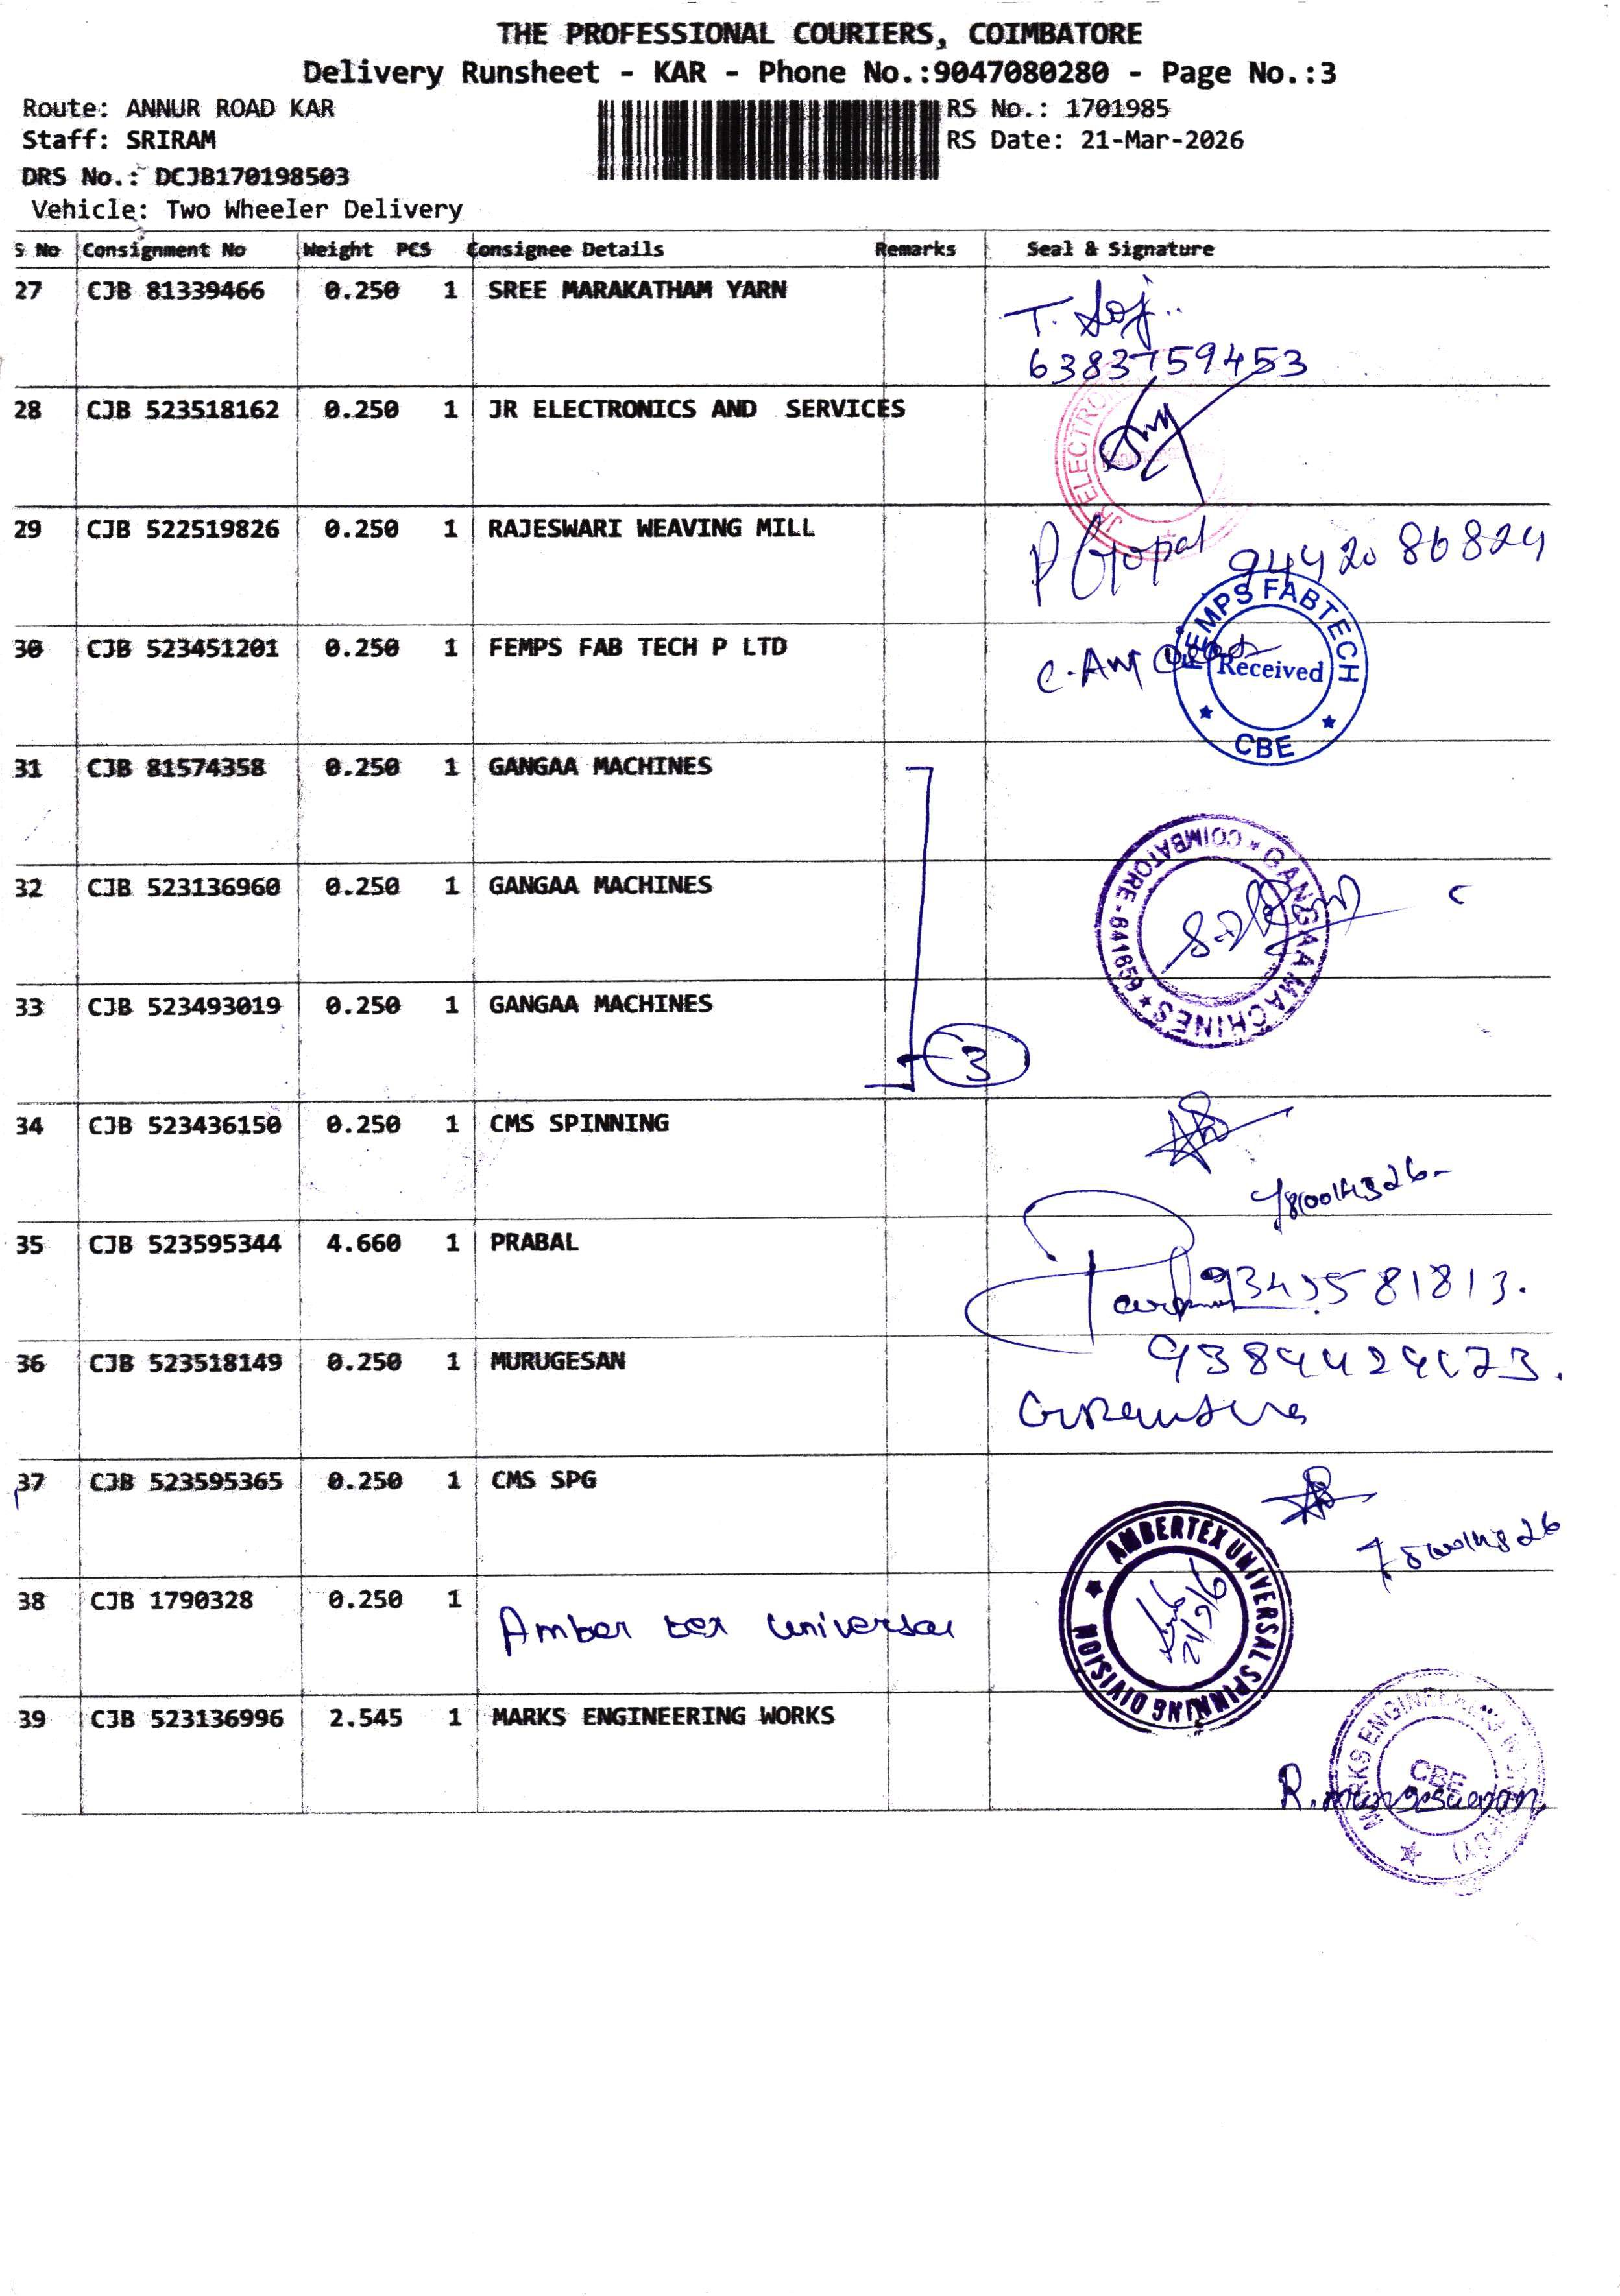 THE PROFESSIONAL COURIERS, COIMBATORE
Delivery Runsheet - KAR - Phone No.:9047080280 - Page No.:3
Route: ANNUR ROAD KAR
RS No.: 1701985
Staff: SRIRAM
RS Date: 21-Mar-2026
DRS No.: DCJB170198503
Vehicle: Two Wheeler Delivery
S No Consignment No Weight PCS Consignee Details Remarks Seal & Signature
27 CJB 81339466 0.250 1 SREE MARAKATHAM YARN
T.
6383759453
28 CJB 523518162 0.250 1 JR ELECTRONICS AND SERVICES
JR ELECTRO
29 CJB 522519826 0.250 1 RAJESWARI WEAVING MILL
P Gopal 9442086824
30 CJB 523451201 0.250 1 FEMPS FAB TECH P LTD
FEMPS FABTECH
Received
CBE
31 CJB 81574358 0.250 1 GANGAA MACHINES
32 CJB 523136960 0.250 1 GANGAA MACHINES
GANGAA MACHINES
COIMBATORE - 641659
33 CJB 523493019 0.250 1 GANGAA MACHINES
3
34 CJB 523436150 0.250 1 CMS SPINNING
35 CJB 523595344 4.660 1 PRABAL
36 CJB 523518149 0.250 1 MURUGESAN
37 CJB 523595365 0.250 1 CMS SPG
38 CJB 1790328 0.250 1 Amber tex universal
AMBERTEX UNIVERSAL SPINNING DIVISION
39 CJB 523136996 2.545 1 MARKS ENGINEERING WORKS
MARKS ENGINEERING
CBE
R. Murugesan